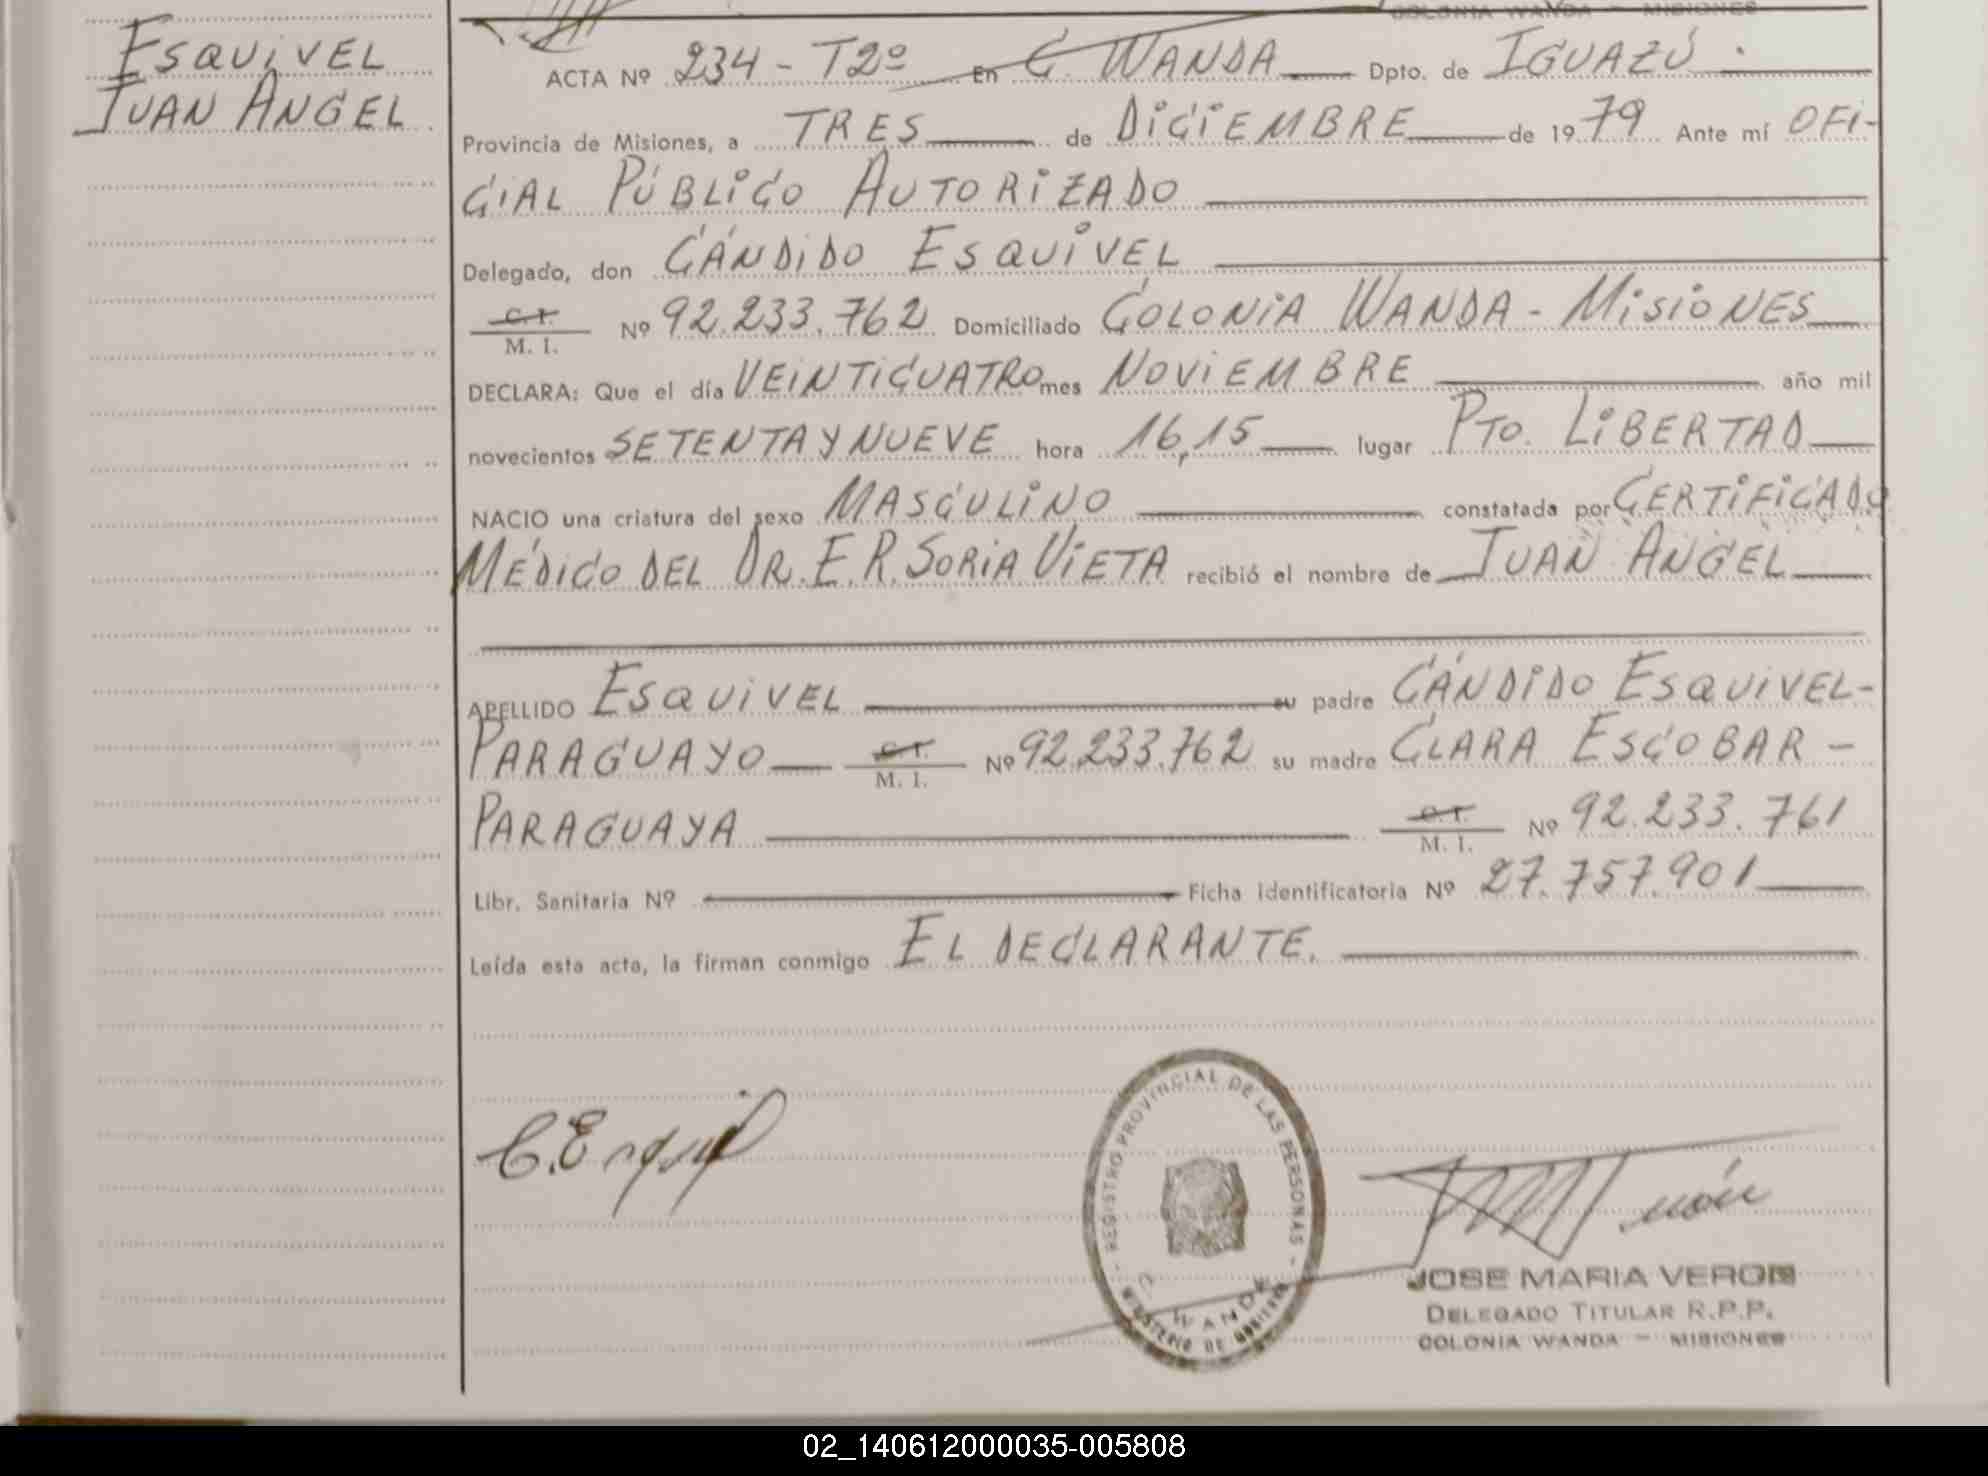 COLONIA WANDA - MISIONES
ESQUIVEL
JUAN ANGEL
ACTA Nº 234 - T2º En C. WANDA Dpto. de IGUAZÚ.
Provincia de Misiones, a TRES de DICIEMBRE de 1979 Ante mí OFI-
CIAL PÚBLICO AUTORIZADO
Delegado, don CÁNDIDO ESQUIVEL
C. I.
M. I. Nº 92.233.762 Domiciliado COLONIA WANDA - MISIONES
DECLARA: Que el día VEINTICUATRO mes NOVIEMBRE año mil
novecientos SETENTA Y NUEVE hora 16,15 lugar PTO. LIBERTAD
NACIO una criatura del sexo MASCULINO constatada por CERTIFICADO
MÉDICO DEL DR. E. R. SORIA VIETA recibió el nombre de JUAN ANGEL
APELLIDO ESQUIVEL su padre CÁNDIDO ESQUIVEL-
PARAGUAYO C. I.
M. I. Nº 92.233.762 su madre CLARA ESCOBAR -
PARAGUAYA C. I.
M. I. Nº 92.233.761
Libr. Sanitaria Nº Ficha identificatoria Nº 27.757.901
Leída esta acta, la firman conmigo EL DECLARANTE.
REGISTRO PROVINCIAL DE LAS PERSONAS
MINISTERIO DE GOBIERNO
JOSE MARIA VERON
DELEGADO TITULAR R.P.P.
COLONIA WANDA - MISIONES
02_140612000035-005808